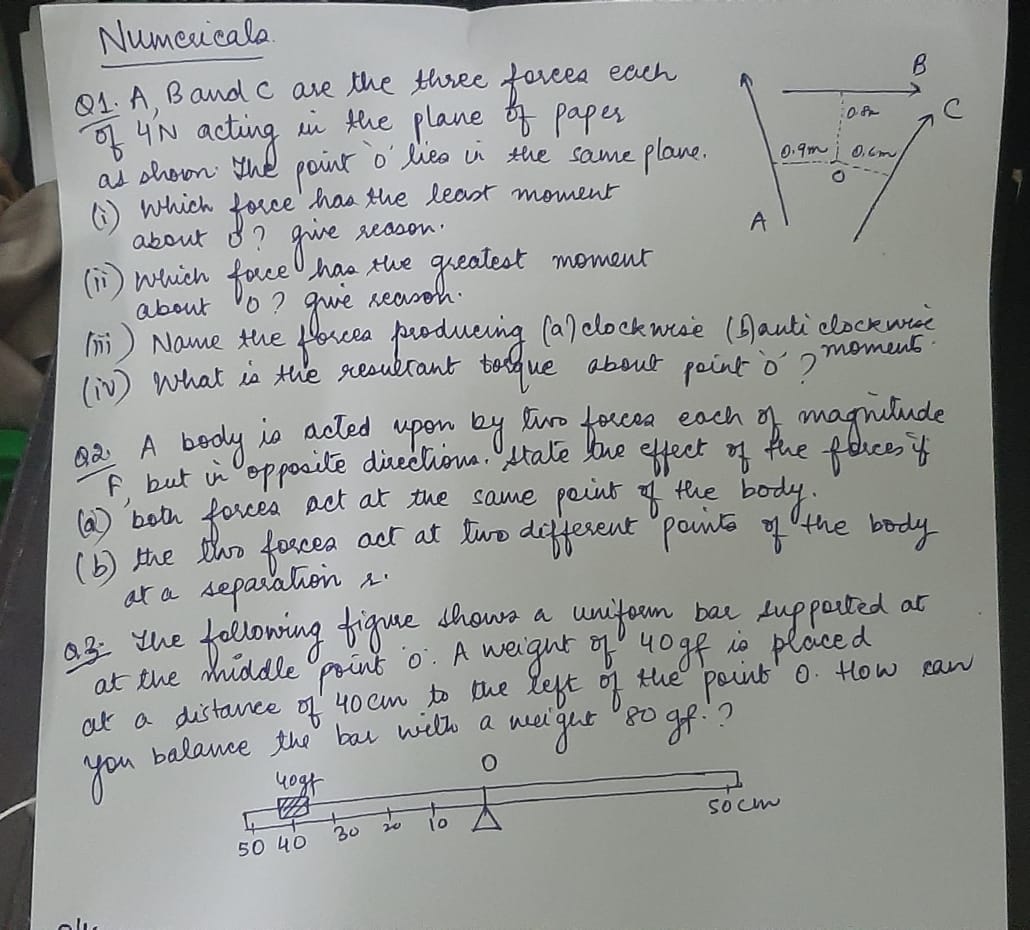 Numericals.
Q1. A, B and C are the three forces each
of 4N acting in the plane of paper
as shown. The point 'O' lies in the same plane.
(i) Which force has the least moment
about O? give reason.
(ii) Which force has the greatest moment
about O? give reason.
(iii) Name the forces producing (a) clockwise (b) anti clockwise
moment.
(iv) What is the resultant torque about point 'O'?
B
C
0.8m
0.9m
0.6m
O
A
Q2. A body is acted upon by two forces each of magnitude
F, but in opposite directions. State the effect of the forces if
(a) both forces act at the same point of the body.
(b) the two forces act at two different points of the body
at a separation r.
Q.3:- The following figure shows a uniform bar supported at
at the middle point 'O'. A weight of 40gf is placed
at a distance of 40cm to the left of the point O. How can
you balance the bar with a weight 80 gf.?
40gf
O
50 40 30 20 10
50 cm